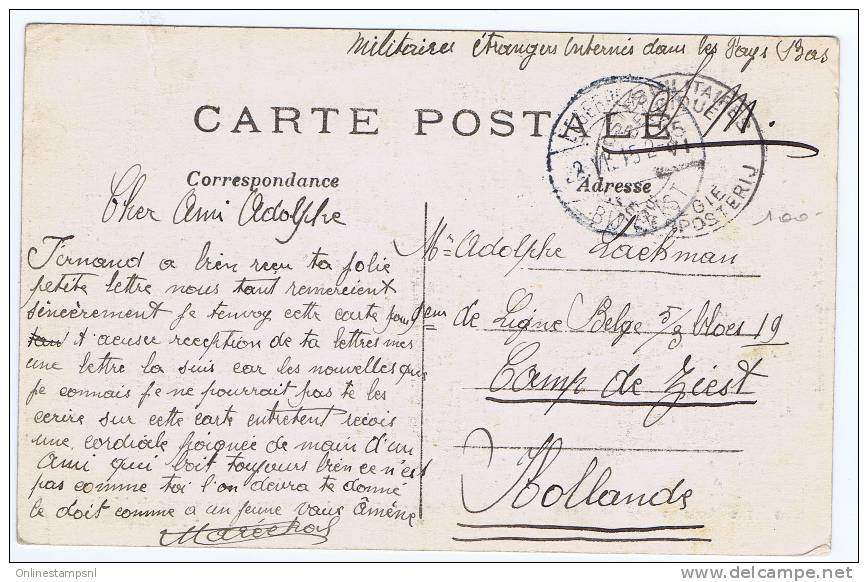 Militaires étrangers internés dans les Pays Bas
F. M.
CARTE POSTALE
Correspondance
Adresse
MILITAIRES
POSTERIJ
100-
Cher Ami Adolphe
Fernand a bien reçu ta jolie
petite lettre nous tant remercient
sincèrement je tenvoy cette carte pour
t'acuser reception de ta lettres mes
une lettre la suis car les nouvelles que
je connais je ne pourrait pas te les
ecrire sur cette carte entretent recois
une cordiale poignée de main d'un
Ami qui boit toujours bien ce n'est
pas comme toi l'on devra te donné
le doit comme a un jeune vaux
Maréchal
Mr Adolphe Laekman
de Ligne Belge 5/3 bloes 19
Camp de Zeist
Hollande
Onlinestampsnl
www.delcampe.net